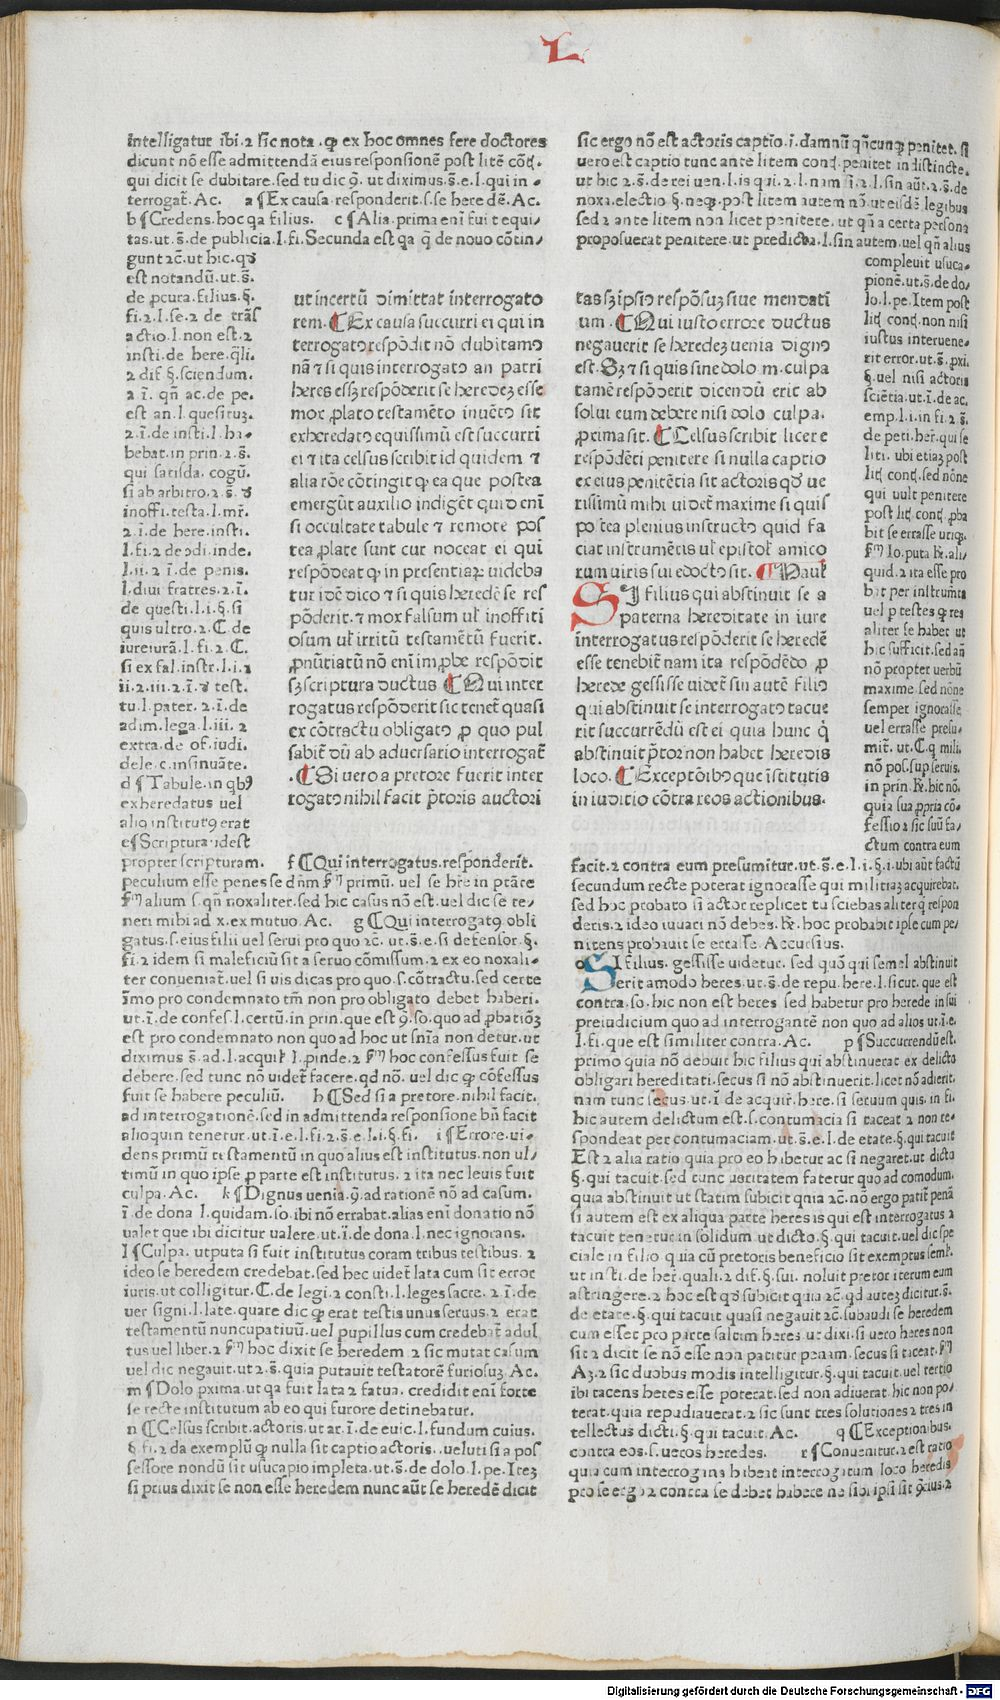 L
intelligatur ibi.⁊ sic nota.ꝙ ex hoc omnes fere doctores
dicunt nō esse admittendā eius responsionē post litē cōt̄.
qui dicit se dubitare.sed tu dic ꝯ. ut diximus.s̄.e.l.qui in-
terrogat̄. Ac. a ¶ Ex causa responderit.s.se heredē. Ac.
b ¶ Credens.hoc qa filius. c ¶ Alia.prima eni fuit equi-
tas.ut.s̄.de publicia.l.fi. Secunda est qa q̄ de nouo cōtin-
gunt ⁊c.ut hic.qd
est notandū.ut.s̄.
de ꝓcura.filius.§.
fi.⁊.l.se.⁊ de trās
actio.l.non est.⁊
insti.de here.q̄li.
⁊ dif §.sciendum.
⁊ ī. qn̄ ac.de pe.
est an.l.quesituꝫ.
⁊.ī.de insti.l.ha-
bebat.in prin.⁊.s̄.
qui satisda.cogū.
si ab arbitro.⁊.s̄.d
inoffi.testa.l.mr̄.
⁊.ī.de here.insti.
l.fi.⁊ de ꝯdi.inde.
l.ii.⁊ ī.de penis.
l.diui fratres.⁊.ī.
de questi.l.i.§.si
quis ultro.⁊.C.de
iureiurā.l.fi.⁊.C.
si ex fal.instr.l.i.⁊
ii.⁊.iii.⁊.ī.d test.
tu.l.pater.⁊.ī.de
adim.lega.l.iii.⁊
extra.de of.iudi.
dele.c.insinuāte.
d ¶ Tabule.in qbꝯ
exheredatus uel
aliꝯ institutꝯ erat
e ¶ Scriptura.idest
propter scripturam. f ¶ Qui interrogatus.responderit.
peculium esse penes se dn̄m ẜm primū. uel se hr̄e in ptāte
ẜm alium s.qn̄ noxaliter.sed hic casus nō est.uel dic se te-
neri mihi ad x.ex mutuo. Ac. g ¶ Qui interrogatꝯ obli
gatus.s.eius filii uel serui pro quo ⁊c. ut.s̄.e.si defensor.§.
fi.⁊ idem si maleficiū sit a seruo cōmissum.⁊ ex eo noxali-
ter conueniat̄.uel si uis dicas pro quo.s.cōtractu.sed certe
īmo pro condemnato tm̄ non pro obligato debet haberi.
ut.ī.de confes.l.certū.in prin.que est ꝯ.so.quo ad ꝓbatiōꝫ
est pro condemnato non quo ad hoc ut sn̄ia non detur.ut
diximus s̄.ad.l.acquil̄ l.pinde.⁊ ẜm hoc confessus fuit se
debere.sed tunc nō uidet̄ facere.qd nō. uel dic ꝙ cōfessus
fuit se habere peculiū. h ¶ Sed si a pretore.nihil facit.
ad interrogationē.sed in admittenda responsione bn̄ facit
alioquin tenetur.ut.ī.e.l.fi.⁊.s̄.e.l.i.§.fi. i ¶ Errore.ui-
dens primū testamentū in quo alius est institutus.non ul-
timū in quo ipse ꝓ parte est institutus.⁊ ita nec leuis fuit
culpa. Ac. k ¶ Dignus uenia.ꝯ.ad rationē nō ad casum.
ī.de dona l.quidam.so.ibi nō errabat.alias eni donatio nō
ualet que ibi dicitur ualere.ut.ī.de dona.l.nec ignorans.
l ¶ Culpa.ut puta si fuit institutus coram tribus testibus.⁊
ideo se heredem credebat.sed hec uidet̄ lata cum sit error
iuris.ut colligitur.C.de legi.⁊ consti.l.leges sacre.⁊.ī.de
uer signi.l.late.quare dic ꝙ erat testis unus seruus.⁊ erat
testamentū nuncupatiuū.uel pupillus cum credebat̄ adul
tus uel liber.⁊ ẜm hoc dixit se heredem ⁊ sic mutat casum
uel dic negauit.ut ⁊.s̄.quia putauit testatorē furiosuꝫ. Ac.
m ¶ Dolo pxima.ut qa fuit lata ⁊ fatua. credidit eni forte
se recte institutum ab eo qui furore detinebatur.
n ¶ Celsus scribit.actoris.ut ar.ī.de euic.l.fundum cuius.
§.fi.⁊ da exemplū ꝙ nulla sit captio actoris..ueluti si a pos
sessore nondū sit usucapio impleta.ut.s̄.de dolo.l.pe.Iteꝫ
si prius dixit se non esse heredem nunc aūt se heredē dicit
ut incertū dimittat interrogato
rem. ¶ Ex causa succurri ei qui in
terrogatꝯ respōdit nō dubitamꝯ
nā ⁊ si quis interrogatꝯ an patri
heres essꝫ respōderit se heredeꝫ esse
mox ꝓlato testamēto inuētꝯ sit
exheredatꝯ equissimū est succurri
ei ⁊ ita celsus scribit id quidem ⁊
alia rōe cōtingit ꝙ ea que postea
emergūt auxilio indigēt quid enī
si occultate tabule ⁊ remote pos
tea ꝓlate sunt cur noceat ei qui
respōdeat ꝙ in presentiaꝝ uideba
tur idē dico ⁊ si quis heredē se res
pōderit.⁊ mox falsum ul inoffiti
osum ul irritū testamētū fuerit.
ꝓnūtiatū nō enī imꝓbe respōdit
sꝫ scriptura ductus ¶ Qui inter
rogatus respōderit sic tenet̄ quasi
ex cōtractu obligatꝯ ꝓ quo pul
sabit̄ dū ab aduersario interrogat̄
.¶ Si vero a pretore fuerit inter
rogatꝯ nihil facit p̄toris auctori
sic ergo nō est actoris captio.i.damnū qn̄cunꝙ penitet. si
uero est captio tunc ante litem cont̄.penitet indistincte.
ut hic ⁊.s̄.de rei uen.l.is qui.⁊.l.nam si.⁊.l.sin aūt.⁊.s̄.de
noxa.electio §.neqꝫ.post litem autem nō.ut eisdē legibus
sed ⁊ ante litem non licet penitere.ut qn̄ a certa persona
proposuerat penitere.ut predicta.l.sin autem.uel qn̄ alius
compleuit usuca-
pionē.ut.s̄.de do-
lo.l.pe.Item post
lit̄ cont̄.non nisi
iustus interuene-
rit error.ut.s̄.pxi.
§.uel nisi actoris
sciētia.ut.ī.de ac.
emp.l.i.in fi.⁊ s̄.
de peti.her̄.qui se
liti. ubi etiaꝫ post
lit̄ cont̄.sed nōne
qui uult penitere
post lit̄ cont̄.ꝓba
bit se errasse utiqꝫ.
ẜm Io.puta R̄.ali-
quid.⁊ ita esse pro
bat per instrumta
uel p testes ꝙ res
aliter se habet ut
hic sufficit.sed an̄
nō propter uerbū
maxime.sed nōne
semper ignorasse
uel errasse presu-
mit̄.ut.C.q mili.
nō pos.sup seruis.
in prin.R̄.hic nō.
quia sua ꝓpria cō-
fessio ⁊ sic suū fa-
ctum contra eum
facit.⁊ contra eum presumitur.ut.s̄.e.l.i.§.i.ubi aūt factū
secundum recte poterat ignorasse qui militiaꝫ acquirebat.
sed hoc probato si actor replicet tu sciebas aliter q̄ respon
deris.⁊ ideo iuuari nō debes. R̄.hoc probabit ipse cum pe-
nitens probauit se errasse. Accursius.
o SI filius. gessisse uidetur. sed quō qui semel abstinuit
erit amodo heres.ut.s̄.de repu.here.l.sicut.que est
contra.so.hic non est heres sed habetur pro herede in sui
preiudicium quo ad interrogantē non quo ad alios ut.ī.e.
l.fi.que est similiter contra. Ac. p ¶ Succurrendū est.
primo quia nō debuit hic filius qui abstinuerat ex delicto
obligari hereditati.secus si nō abstinuerit.licet nō adierit.
nam tunc secus.ut.ī.de acquir̄.here.si seruum quis.in fi.
hic autem delictum est.s.contumacia si taceat ⁊ non re-
spondeat per contumaciam.ut.s̄.e.l.de etate.§.qui tacuit
Est ⁊ alia ratio quia pro eo hibetur ac si negaret.ut dicto
§.qui tacuit.sed tunc ueritatem fatetur quo ad comodum.
quia abstinuit ut statim subicit quia ⁊c.nō ergo patit̄ penā
si autem est ex aliqua parte heres is qui est interrogatus ⁊
tacuit tenetur in solidum.ut dicto.§.qui tacuit.uel dic spe
ciale in filio quia cū pretoris beneficio sit exemptus seml̄.
ut insti.de her̄.quali.⁊ dif.§.sui. noluit pretor iterum eum
astringere.⁊ hoc est qd subicit quia ⁊c.qd auteꝫ dicitur.s̄.
de etate.§.qui tacuit quasi negauit ⁊c.subaudi se heredem
cum esset pro parte saltim heres ut dixi.si uero heres non
sit ⁊ dicit se nō esse non patitur penam.secus si taceat.ẜm
Aꝫ.⁊ sic duobus modis intelligitur.§.qui tacuit.uel tertio
ibi tacens heres esse poterat.sed non adiuerat.hic non po-
terat.quia repudiauerat.⁊ sic sunt tres solutiones ⁊ tres in
tellectus dicti.§.qui tacuit. Ac. q ¶ Exceptionibus.
contra eos.s.ueros heredes. r ¶ Conuenitur.⁊ est ratio
quia cum interrogans habeat interrogatum loco heredis
pro se ergo ⁊ contra se debet habere ne sibi ipsi sit ꝯrius.⁊
tas sꝫ ipsiꝯ respōsuꝫ siue mendati
um.¶ Qui iusto errore ductus
negauerit se heredeꝫ uenia dignꝯ
est.Sꝫ ⁊ si quis sine dolo m.culpa
tamē respōderit dicendū erit ab
solui eum debere nisi dolo culpa.
ꝓxima sit. ¶ Celsus scribit licere
respōdēti penitere si nulla captio
ex eius penitētia sit actoris qd ue
rissimū mihi uidet̄ maxime si quis
postea plenius instructꝯ quid fa
ciat instrumētis ul epistol̄ amico
rum uiris sui edoctꝯ sit. ¶ Paul̄
SI filius qui abstinuit se a
paterna hereditate in iure
interrogatus respōderit se heredē
esse tenebit̄ nam ita respōdēdo ꝓ
herede gessisse uidet̄ sin autē filiꝯ
qui abstinuit se interrogatꝯ tacue
rit succurrēdū est ei quia hunc q̇
abstinuit p̄tor non habet heredis
loco. ¶ Exceptōibꝯ que īstitutis
in iuditio cōtra reos actionibus.
Digitalisierung gefördert durch die Deutsche Forschungsgemeinschaft - DFG